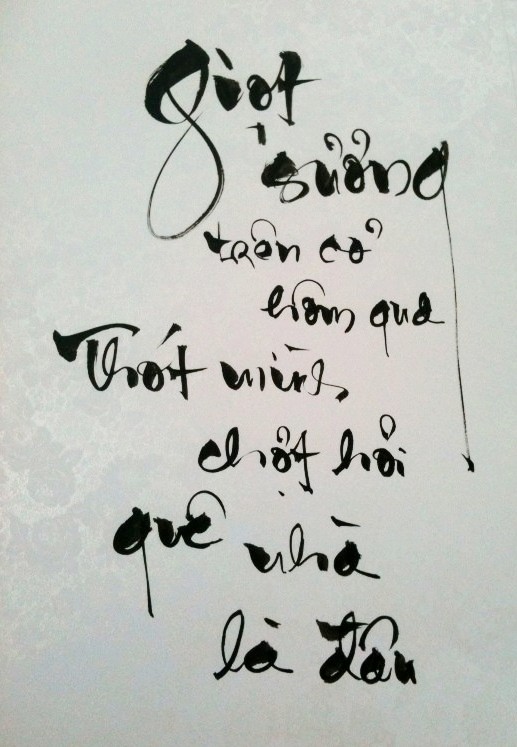 giọt
sương
trên cỏ
hôm qua
Thót mình
chợt hỏi
quê nhà
là đâu